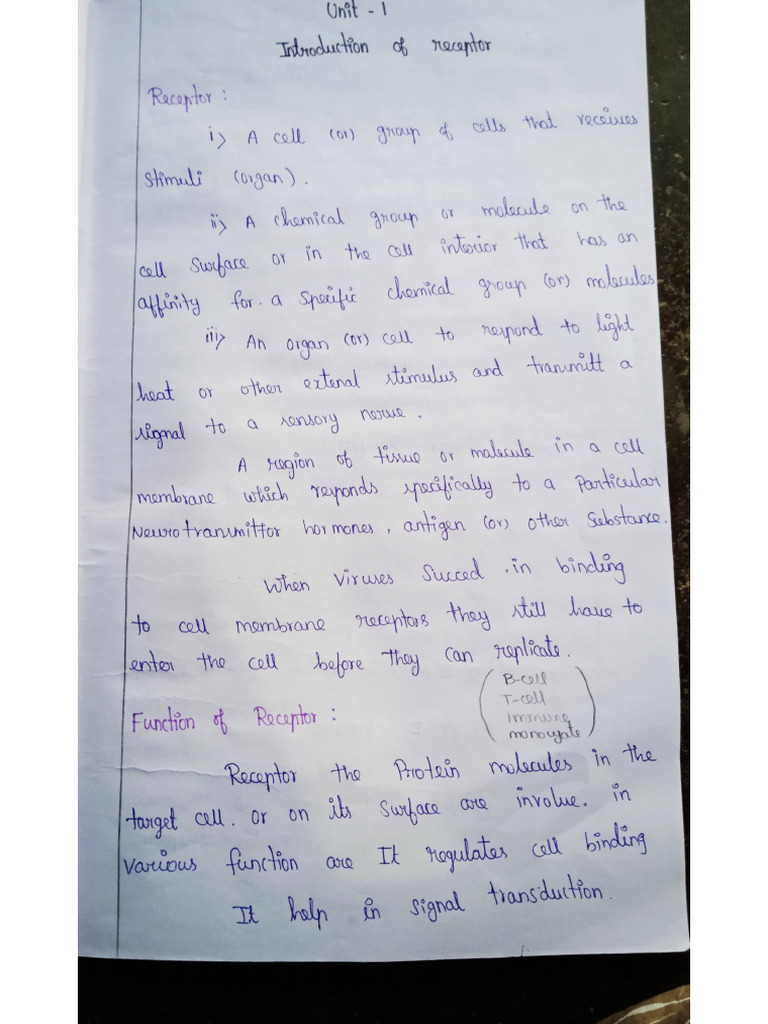 Unit - 1
Introduction of receptor
Receptor :
i) A cell (or) group of cells that receives
stimuli (organ).
ii) A chemical group or molecule on the
cell surface or in the cell interior that has an
affinity for a specific chemical group (or) molecules
iii) An organ (or) cell to respond to light
heat or other extenal stimulus and transmitt a
signal to a sensory nerve.
A region of tissue or molecule in a cell
membrane which responds specifically to a Particular
Neurotransmittor hormones, antigen (or) other Substance.
When viruses Succed in binding
to cell membrane receptors they still have to
enter the cell before they can replicate.
B-cell
T-cell
immune
monocyate
Function of Receptor :
Receptor the Protein molecules in the
target cell. or on its surface are involve. in
various function are It regulates cell binding
It help in signal transduction.